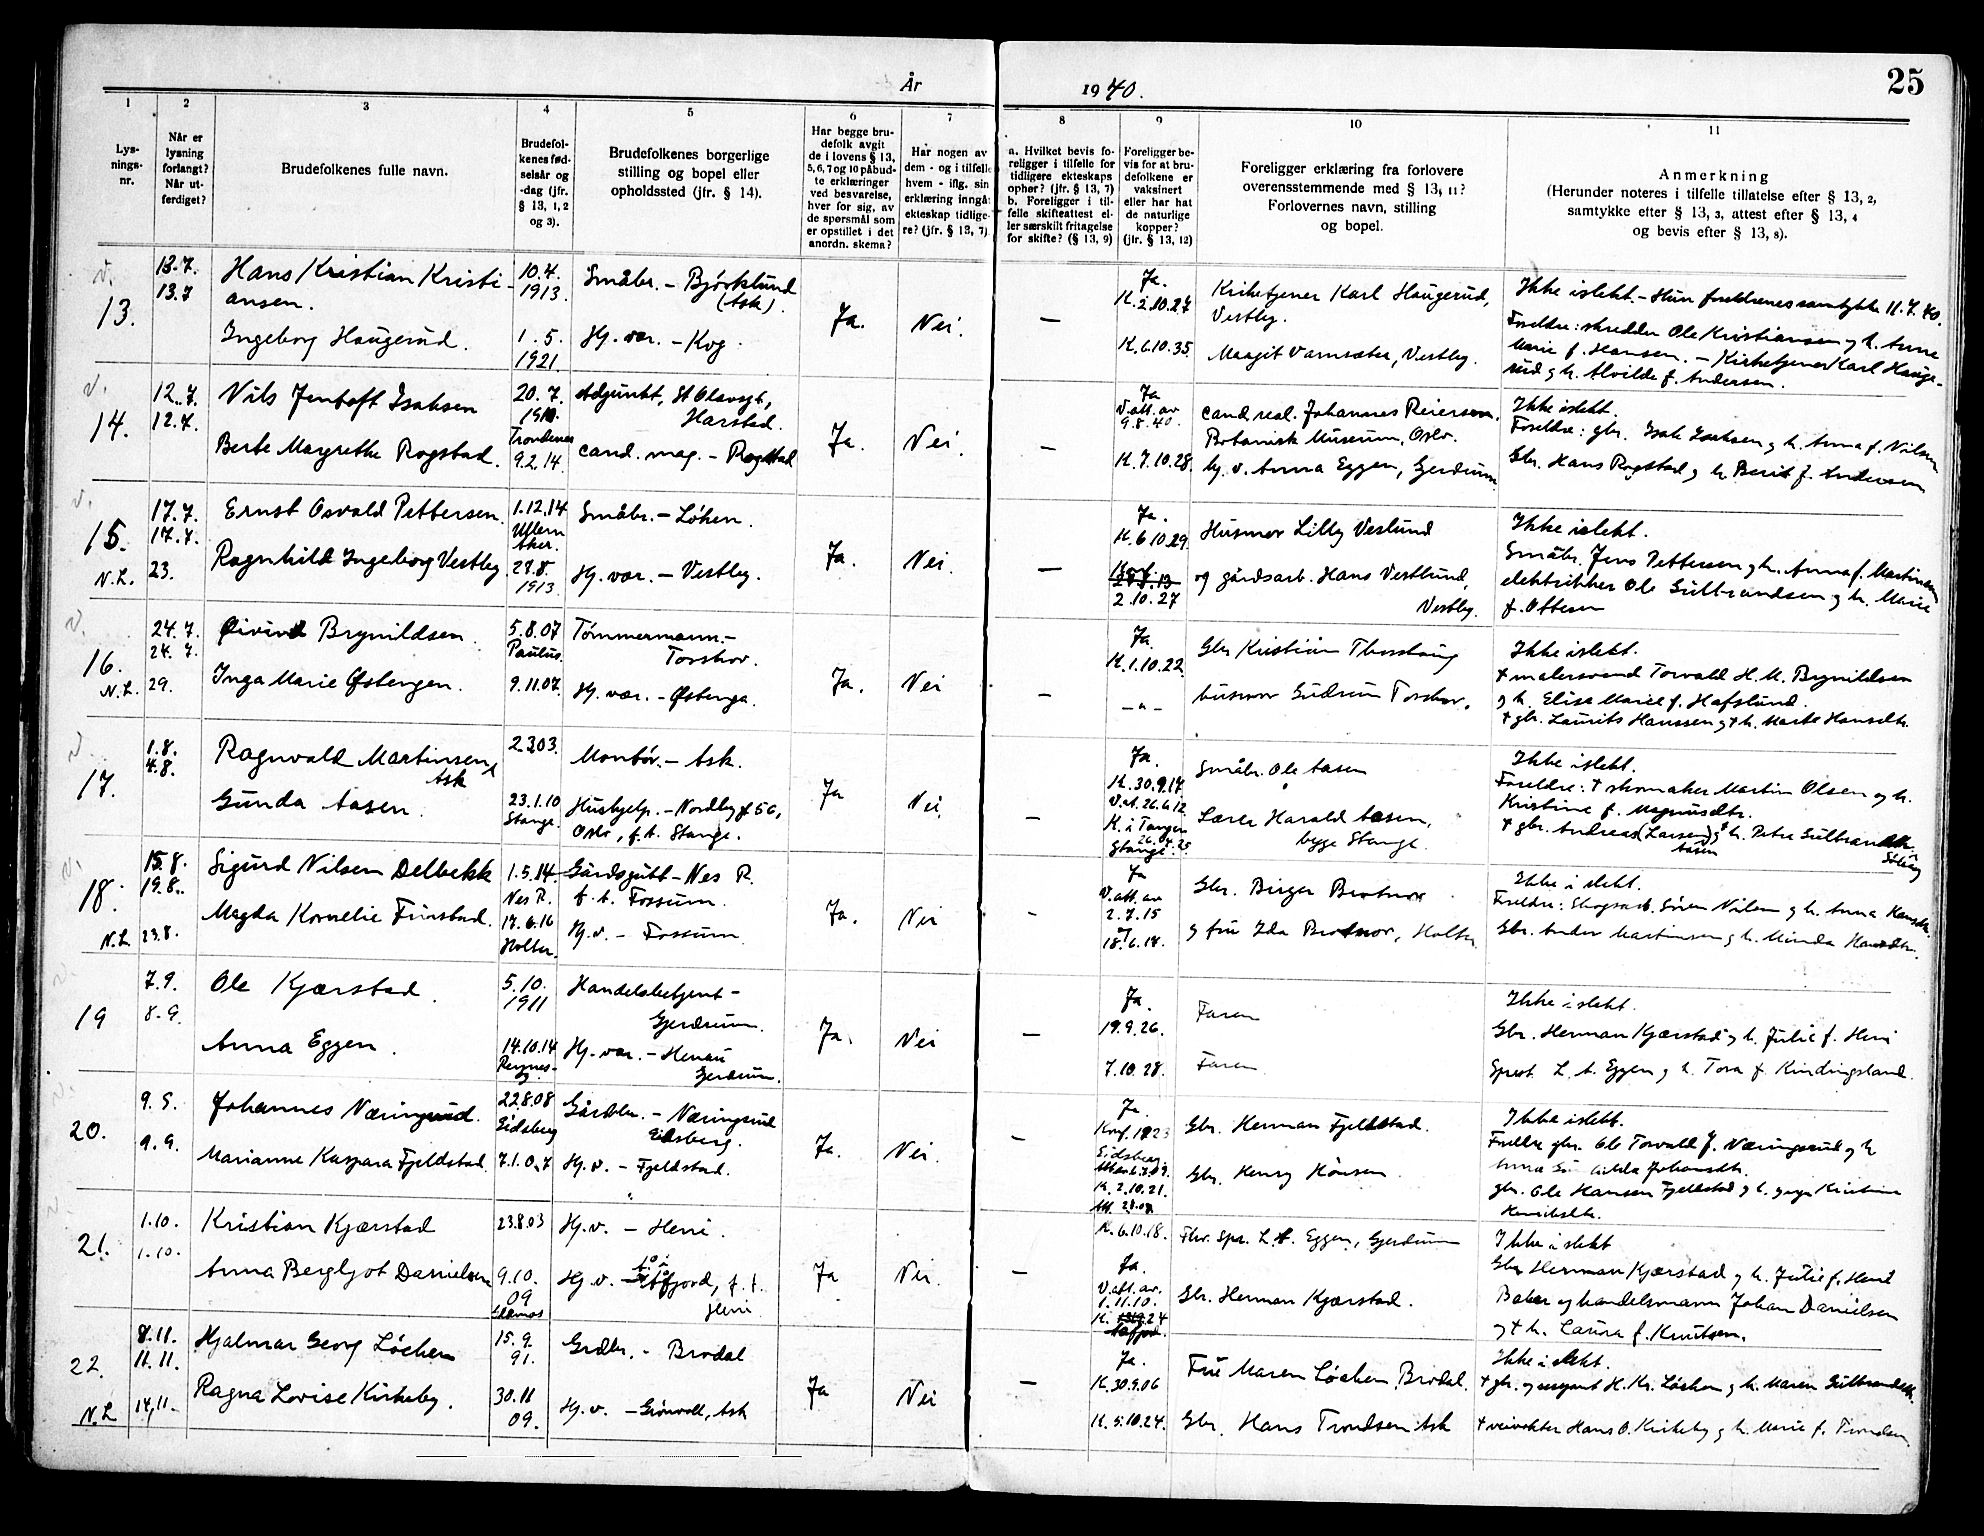 25
År 1940.
1 2 3 4 5 6 7 8 9 10 11
Lys-
nings-
nr.
Når er
lysning
forlangt?
Når ut-
ferdiget?
Brudefolkenes fulle navn.
Brudefol-
kenes fød-
selsår og
-dag (jfr.
§ 13, 1, 2
og 3).
Brudefolkenes borgerlige
stilling og bopel eller
opholdssted (jfr. § 14).
Har begge bru-
defolk avgit
de i lovens § 13,
5, 6, 7 og 10 påbud-
te erklæringer
ved besvarelse,
hver for sig, av
de spørsmål som
er opstillet i det
anordn. skema?
Har nogen av
dem - og i tilfelle
hvem - iflg. sin
erklæring inngå
ekteskap tidlige-
re? (jfr. § 13, 7)
a. Hvilket bevis fo-
religger i tilfelle for
tidligere ekteskaps
ophør? (jfr. § 13, 7)
b. Foreligger i til-
felle skifteattest el-
ler særskilt fritagelse
for skifte? (§ 13, 9)
Foreligger be-
vis for at bru-
defolkene er
vaksinert
eller har hat
de naturlige
kopper?
(jfr. § 13, 12)
Foreligger erklæring fra forlovere
overensstemmende med § 13, 11?
Forlovernes navn, stilling
og bopel.
Anmerkning
(Herunder noteres i tilfelle tillatelse efter § 13, 2,
samtykke efter § 13, 3, attest efter § 13, 4
og bevis efter § 13, 8).
13.
13.7.
13.7
Hans Kristian Kristi-
ansen.
10.4.
1913.
Småbr. - Bjørklund
(Ask).
Ingeborg Haugerud.
1.5.
1921
Hj. vær. - Kog.
Ja.
Nei.
—
Ja.
K. 2.10.27
K. 6.10.35
Kirketjener Karl Haugerud,
Vestby.
Margit Varnsæter, Vestby.
Ikke i slekt. - Hun foreldrenes samtykke 11.7.40.
Foreldre: skredder Ole Kristiansen og h. Anne
Marie f. Hansen. - Kirketjener Karl Hauge-
rud og h. Alvilde f. Andersen.
14.
12.7.
12.7.
Nils Jentoft Isaksen
20.7.
1910.
Trondenes
Adjunkt, St Olavsgt,
Harstad.
Berte Margrethe Rogstad.
9.2.14.
cand. mag. - Rogstad
Ja.
Nei.
—
Ja
V.att. av
9.8.40.
K. 7.10.28.
cand real. Johannes Reiersen,
Botanisk Museum, Oslo.
hj. v. Anna Eggen, Gjerdrum.
Ikke i slekt.
Foreldre: gbr. Isak Isaksen og h. Anna f. Nilsen
Gbr. Hans Rogstad og h. Berit f. Andersen
15.
N.L.
17.7.
17.7.
23.
Ernst Osvald Pettersen.
1.12.14
Ullern
Aker.
Småbr. - Løken.
Ragnhild Ingeborg Vestby
27.8.
1913
Hj. vær. - Vestby.
Ja.
Nei.
—
Ja.
K. 6.10.29.
2.10.27
Husmor Lilly Veslund
og gårdsarb. Hans Vestlund,
Vestby.
Ikke i slekt.
Småbr. Jens Pettersen og h. Anna f. Martinsen
elektriker Ole Gulbrandsen og h. Marie
f. Ottesen
16.
N.L.
24.7.
24.7.
29.
Øivind Brynildsen.
5.8.07
Paulus.
Tømmermann. -
Torshov.
Inga Marie Østengen.
9.11.07.
Hj. vær. - Østenga.
Ja.
Nei
—
Ja.
K. 1.10.22.
—"—
Gbr Kristian Thorshaug
husmor Gudrun Torshov.
Ikke i slekt.
† malersvend Torvald H. M. Brynildsen
og h. Elise Marie f. Hafslund.
† gbr. Laurits Hanssen og † h. Marte Hansdtr.
17.
1.8.
4.8.
Ragnvald Martinsen,
Ask
2.3.03.
Montør. - Ask.
Gunda Aasen.
23.1.10
Stange.
Hushjelp. - Nordbygt 56,
Oslo, f.t. Stange.
Ja
Nei.
—
Ja.
K. 30.9.17.
V.at. 26.6.12
K. i Tangen
Stange
Småbr. Ole Aasen
Lærer Harald Aasen,
bygg Stange.
Ikke i slekt.
Foreldre: † skomaker Martin Olsen og h.
Kristine f. Magnusdtr.
† gbr. Andreas (Larsen) og † h. Petra Gulbrandsdtr.
Aasen
18.
N.L
15.8.
19.8.
23.8.
Sigurd Nilsen Delbekk
1.5.14
Nes R.
Gårdsgutt - Nes R.
f. t. Fossum.
Magda Kornelie Finstad.
17.6.16
Holter.
Hj. v. - Fossum.
Ja.
Nei
-
Ja
V.att. av
2.7.15
18.6.18.
Gbr. Birger Brotnov
og fru Ida Brotnov, Holter
Ikke i slekt.
Foreldre: Skogsarb. Sören Nilsen og h. Anna Hansdtr.
Gbr. Anders Martinsen og h. Minda Hansdtr.
19
7.9.
8.9.
Ole Kjærstad.
5.10.
1911
Handelsbetjent -
Gjerdrum.
Anna Eggen.
14.10.14
Hj. vær. - Heni
Gjerdrum.
Ja.
Nei
—
Ja.
19.9.26.
7.10.28.
Faren
Faren
Ikke i slekt.
Gbr. Herman Kjærstad og h. Julie f. Heni
Sprest L. A. Eggen og h. Tora f. Kindingsland.
20.
9.9.
9.9.
Johannes Næringsrud.
22.8.08
Eidsberg
Gårdbr. - Næringsrud
Eidsberg.
Marianne Kaspara Fjeldstad.
7.1.07
Hj. v. - Fjeldstad.
Ja.
Nei.
—
Ja.
Konf. 1923
Eidsberg.
K. 2.10.21.
Gbr. Herman Fjeldstad.
Gbr. Henry Hönsen.
Ikke i slekt.
Foreldre gbr. Ole Torvald J. Næringsrud og h
gbr. Ole Hansen Fjeldstad og h. Kristine
Henriksdtr.
21.
1.10.
1.10.
Kristian Kjærstad
23.8.03
Hj. v. - Heni.
Anna Bergljot Danielsen
9.10.
09
Hj. v. -
f. t.
Heni
Ja
Nei.
—
K. 6.10.18.
Ja.
V.att. av.
1.11.10.
Fhv. Spr. L. A. Eggen, Gjerdrum
Gbr. Herman Kjærstad.
Ikke i slekt
Gbr Herman Kjærstad og h. Julie f. Heni
Baker og handelsmann Johan Danielsen
og † h. Laura f. Knutsen.
22.
N.L
8.11.
11.11.
14.11.
Hjalmar Georg Löchen
15.9.
91.
Grdbr. - Brodal
Ragna Lovise Kirkeby.
30.11
09.
Hj. v. - Grönvoll, Ask
Ja
Nei
—
Ja.
K. 30.9.06
K. 5.10.24.
Fru Maren Löchen, Brodal.
Gbr. Hans Trondsen Ask
Ikke i slekt.
† gbr. og sersjant H. Kr. Löchen og h. Maren Gulbrandsdtr.
† veivokter Hans O. Kirkeby og h. Marie f. Trondsen